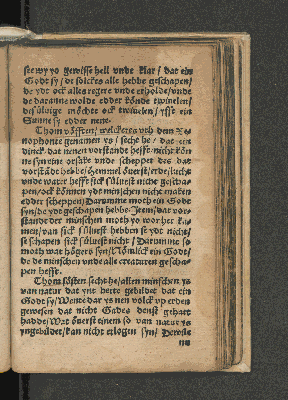 see wy yo gewisse hell vnde klar / dat ein
Godt sy / de solckes alle hebbe geschapen /
de ydt ock alles regere vnde erholde / vnde
de daranne wolde edder könde twiuelen /
desüluige möchte ock twiuelen / yfft ein
Sunne sy edder nene.
Thom vöfften / welckere vth dem Xe-
nophonte genamen ys / secht he / dat ein
dinck dat nenen vorstandt hefft / nicht kön
ne syn eine orsake vnde schepper des dat
vorstãdt hebbe / Hemmel öuerst / erde / lucht
vnde water hefft sick süluest nicht gescha-
pen / ock können ydt minschen nicht maken
edder scheppen / Darumme moth ein Godt
syn / de ydt geschapen hebbe. Item / dat vor-
standt der minschen moth yo wor her ka-
men / van sick süluest hebben se ydt nicht /
se schapen sick süluest nicht / Darumme so
moth wat högers syn / Nömlick ein Godt /
de de minschen vnde alle creaturen gescha-
pen hefft.
Thom sösten secht he / allen minschen ys
van natur dat ynt herte gebildet dat ein
Godt sy / Wente dar ys nen volck vp erden
gewesen dat nicht Gades denst gehatt
hadde / Wat öuerst einem so van natur ys
yngebildet / kan nicht erlogen syn / Derwe